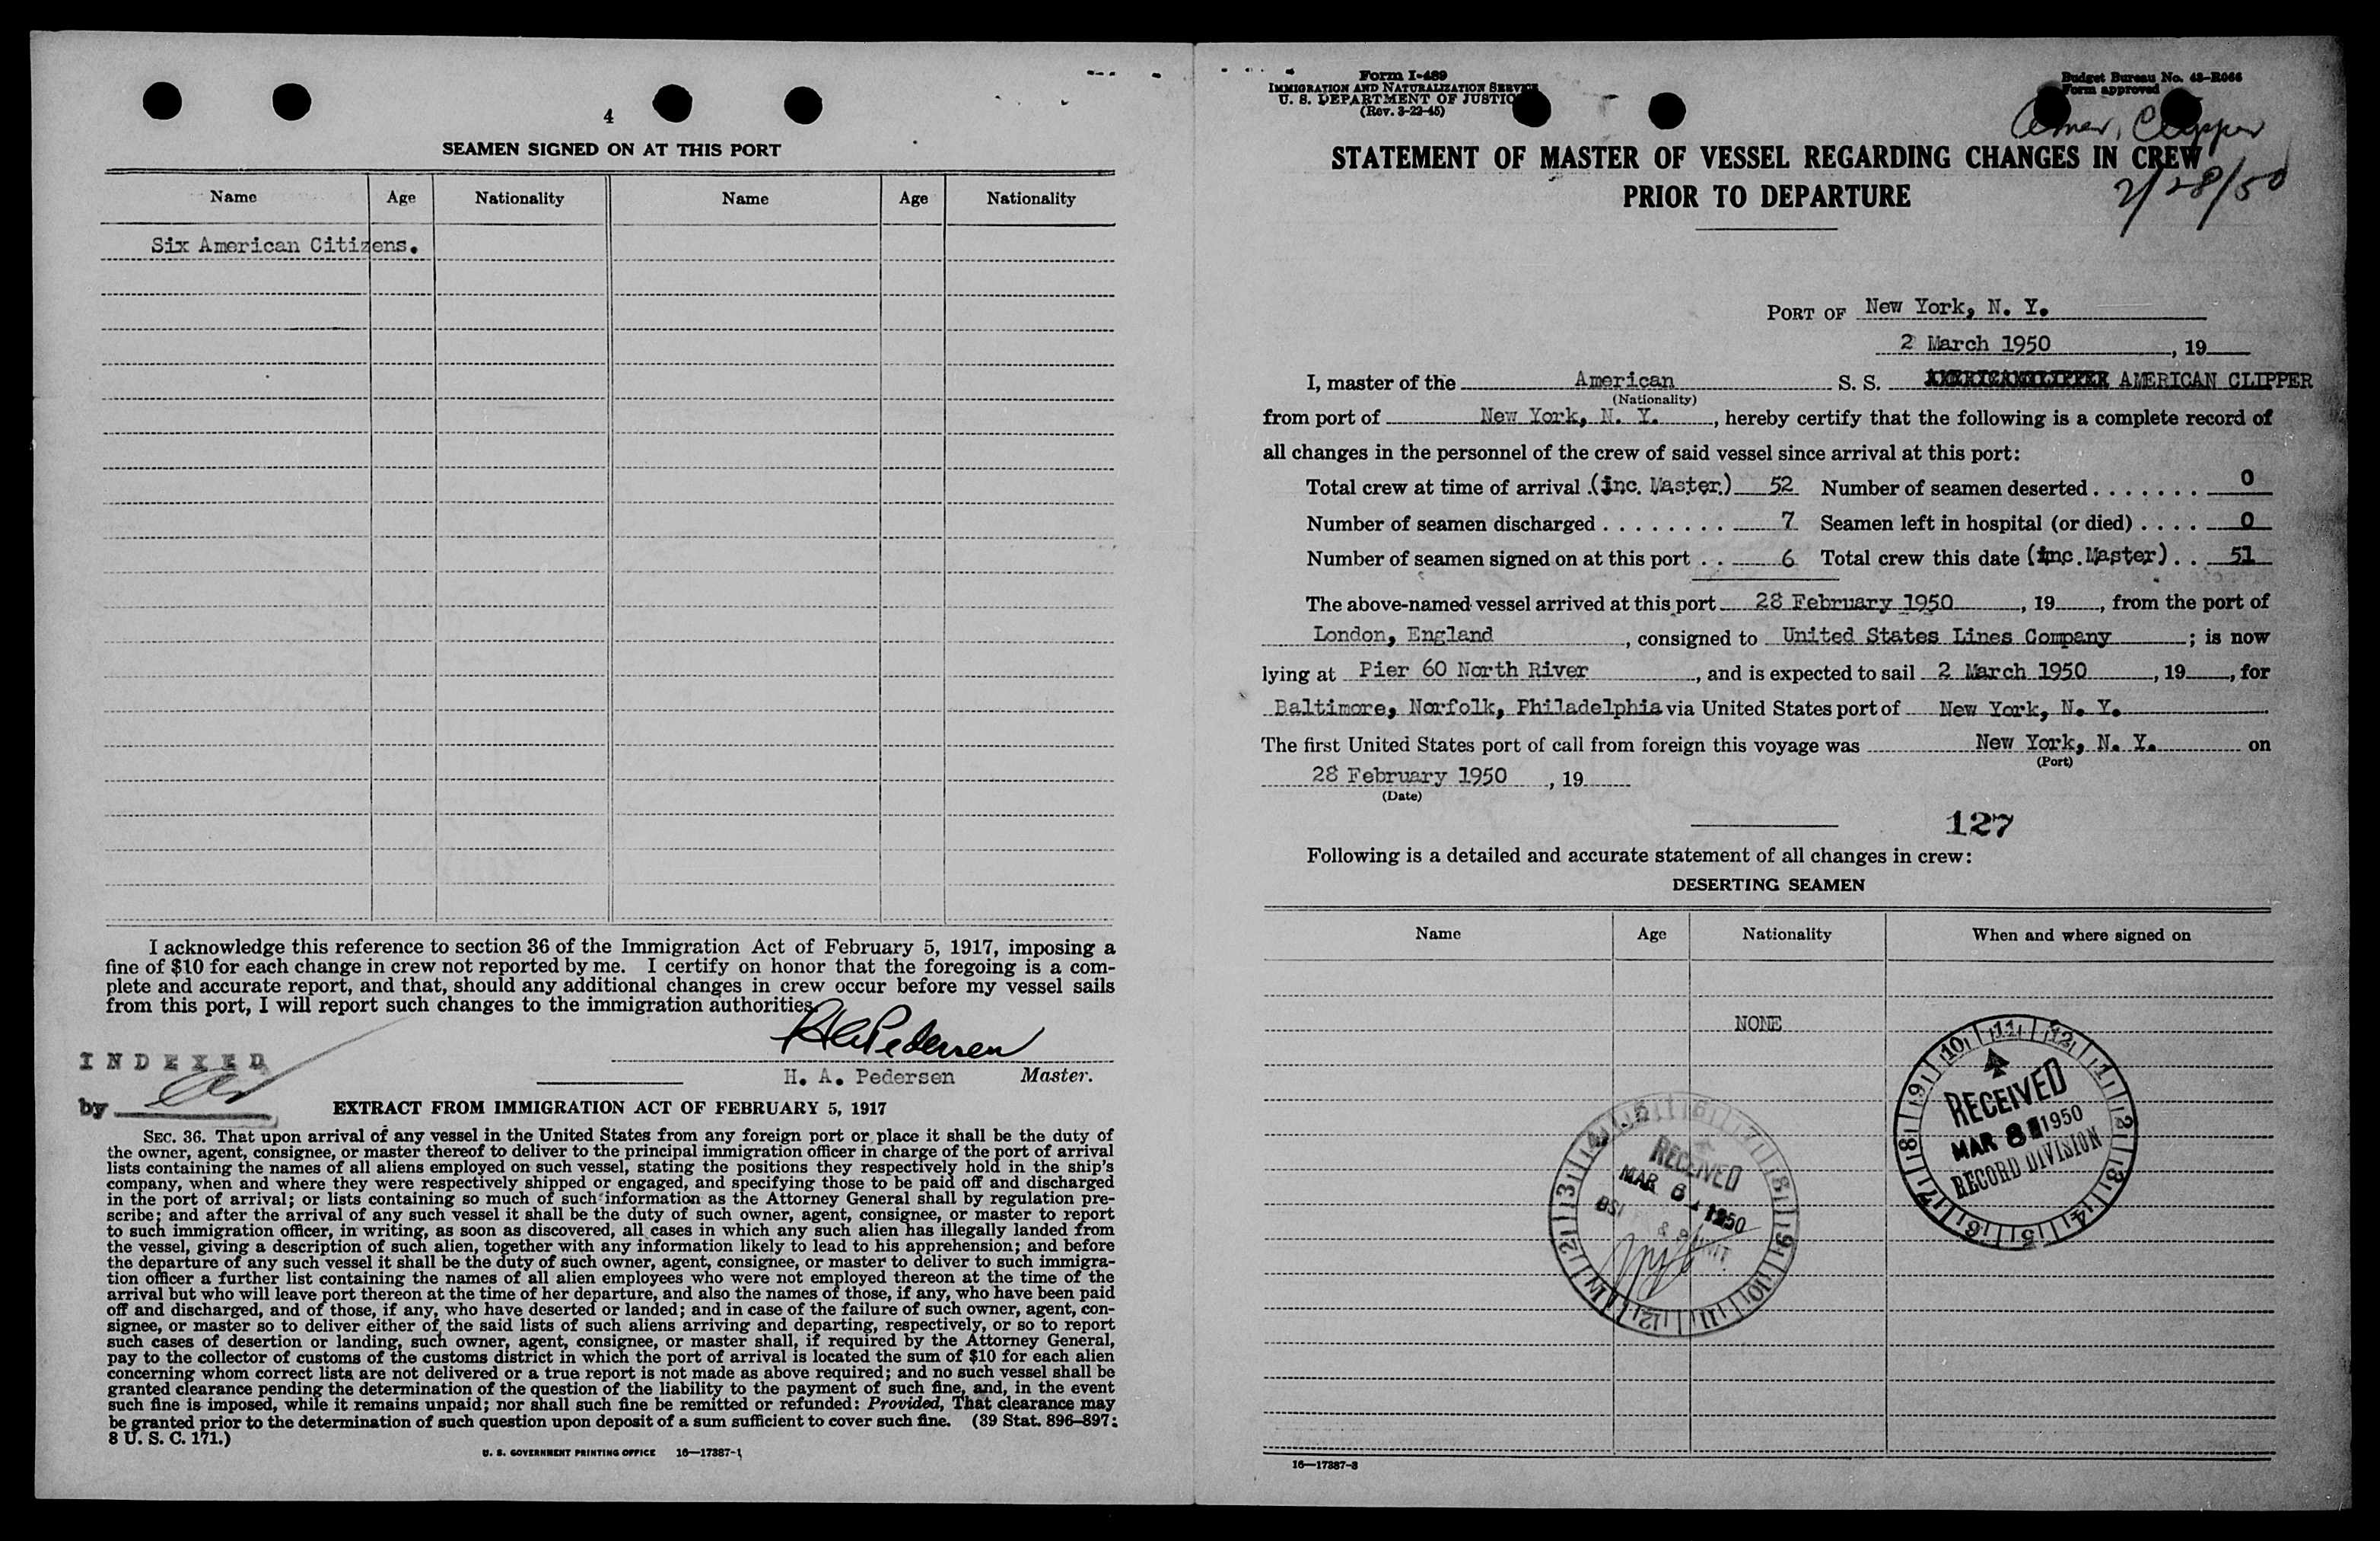 4
SEAMEN SIGNED ON AT THIS PORT
Name Age Nationality Name Age Nationality
Six American Citizens.
I acknowledge this reference to section 36 of the Immigration Act of February 5, 1917, imposing a
fine of $10 for each change in crew not reported by me. I certify on honor that the foregoing is a com-
plete and accurate report, and that, should any additional changes in crew occur before my vessel sails
from this port, I will report such changes to the immigration authorities
H A Pedersen
H. A. Pedersen Master.
INDEXED
by
EXTRACT FROM IMMIGRATION ACT OF FEBRUARY 5, 1917
SEC. 36. That upon arrival of any vessel in the United States from any foreign port or place it shall be the duty of
the owner, agent, consignee, or master thereof to deliver to the principal immigration officer in charge of the port of arrival
lists containing the names of all aliens employed on such vessel, stating the positions they respectively hold in the ship's
company, when and where they were respectively shipped or engaged, and specifying those to be paid off and discharged
in the port of arrival; or lists containing so much of such information as the Attorney General shall by regulation pre-
scribe; and after the arrival of any such vessel it shall be the duty of such owner, agent, consignee, or master to report
to such immigration officer, in writing, as soon as discovered, all cases in which any such alien has illegally landed from
the vessel, giving a description of such alien, together with any information likely to lead to his apprehension; and before
the departure of any such vessel it shall be the duty of such owner, agent, consignee, or master to deliver to such immigra-
tion officer a further list containing the names of all alien employees who were not employed thereon at the time of the
arrival but who will leave port thereon at the time of her departure, and also the names of those, if any, who have been paid
off and discharged, and of those, if any, who have deserted or landed; and in case of the failure of such owner, agent, con-
signee, or master so to deliver either of the said lists of such aliens arriving and departing, respectively, or so to report
such cases of desertion or landing, such owner, agent, consignee, or master shall, if required by the Attorney General,
pay to the collector of customs of the customs district in which the port of arrival is located the sum of $10 for each alien
concerning whom correct lists are not delivered or a true report is not made as above required; and no such vessel shall be
granted clearance pending the determination of the question of the liability to the payment of such fine, and, in the event
such fine is imposed, while it remains unpaid; nor shall such fine be remitted or refunded: Provided, That clearance may
be granted prior to the determination of such question upon deposit of a sum sufficient to cover such fine. (39 Stat. 896–897;
8 U. S. C. 171.)
U. S. GOVERNMENT PRINTING OFFICE 16—17387-1
Form I-489
IMMIGRATION AND NATURALIZATION SERVICE
U. S. DEPARTMENT OF JUSTIC
(Rev. 3-22-45)
Budget Bureau No. 43-R066
Form approved
Amer. Clipper
2/28/50
STATEMENT OF MASTER OF VESSEL REGARDING CHANGES IN CREW
PRIOR TO DEPARTURE
PORT OF New York, N. Y.
2 March 1950, 19
I, master of the American S. S. AMERICAN CLIPPER
(Nationality)
from port of New York, N. Y., hereby certify that the following is a complete record of
all changes in the personnel of the crew of said vessel since arrival at this port:
Total crew at time of arrival (inc. Master.) 52 Number of seamen deserted . . . . . . . 0
Number of seamen discharged . . . . . . . . 7 Seamen left in hospital (or died) . . . . 0
Number of seamen signed on at this port . . 6 Total crew this date (inc. Master) . . 51
The above-named vessel arrived at this port 28 February 1950, 19, from the port of
London, England, consigned to United States Lines Company; is now
lying at Pier 60 North River, and is expected to sail 2 March 1950, 19, for
Baltimore, Norfolk, Philadelphia via United States port of New York, N. Y.
The first United States port of call from foreign this voyage was New York, N. Y. on
(Port)
28 February 1950, 19
(Date)
127
Following is a detailed and accurate statement of all changes in crew:
DESERTING SEAMEN
Name Age Nationality When and where signed on
NONE
11 12 1 2 3 4 5 6 7 8 9 10
RECEIVED
MAR 8 1950
RECORD DIVISION
RECEIVED
MAR 6 1950
BSI
16—17387-3